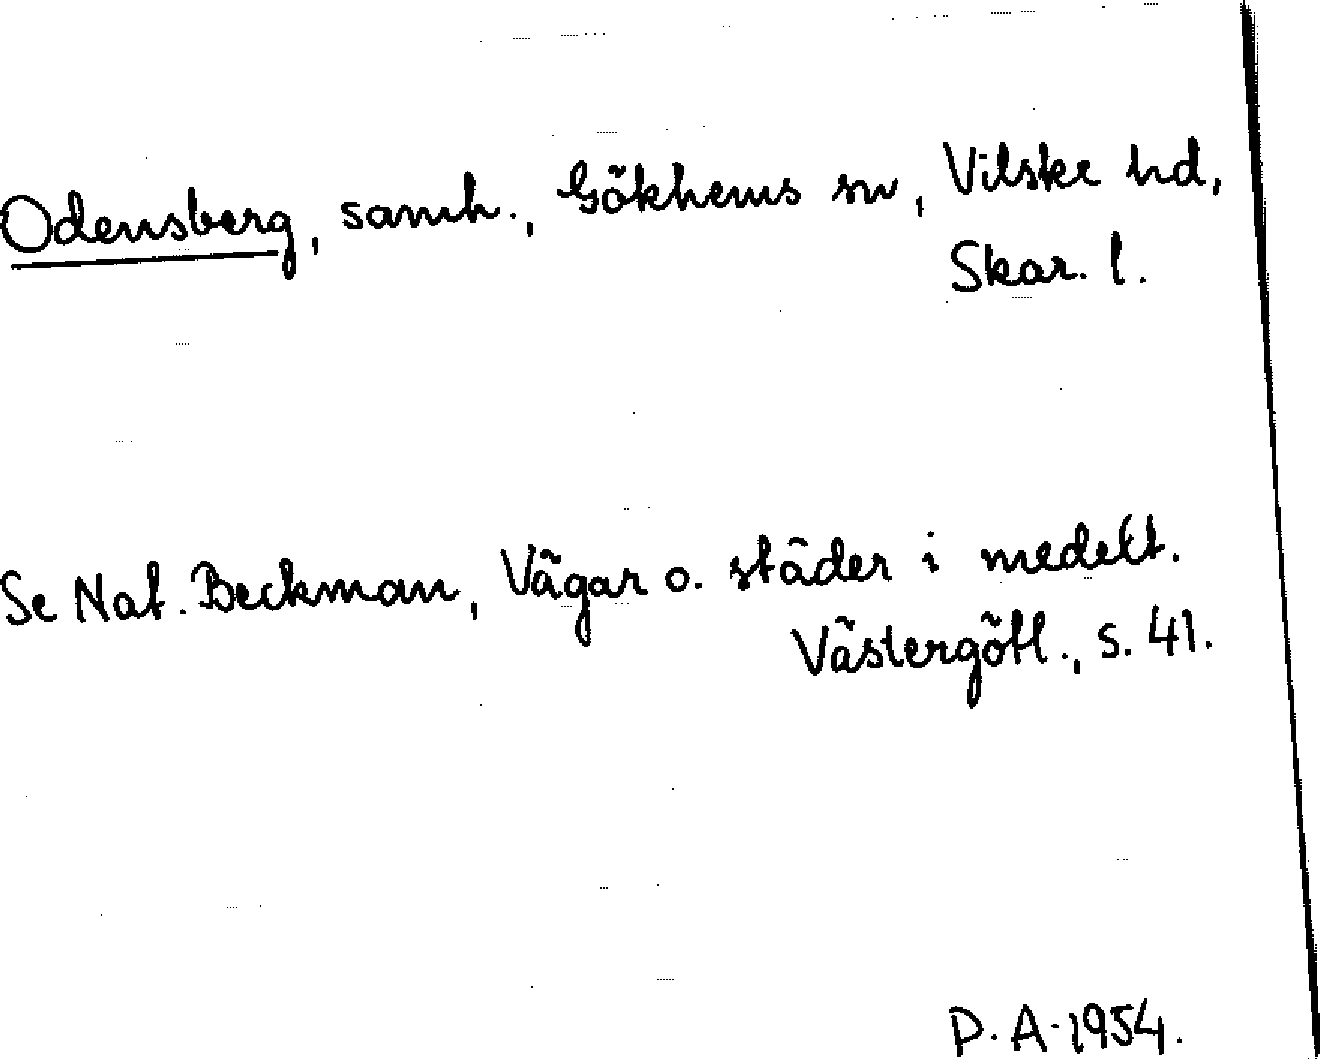 Odensberg, samh., Gökhems sn, Vilske hd,
Skar. l.
Se Nat. Beckman, Vägar o. städer i medelt.
Västergötl., s. 41.
P. A. 1954.